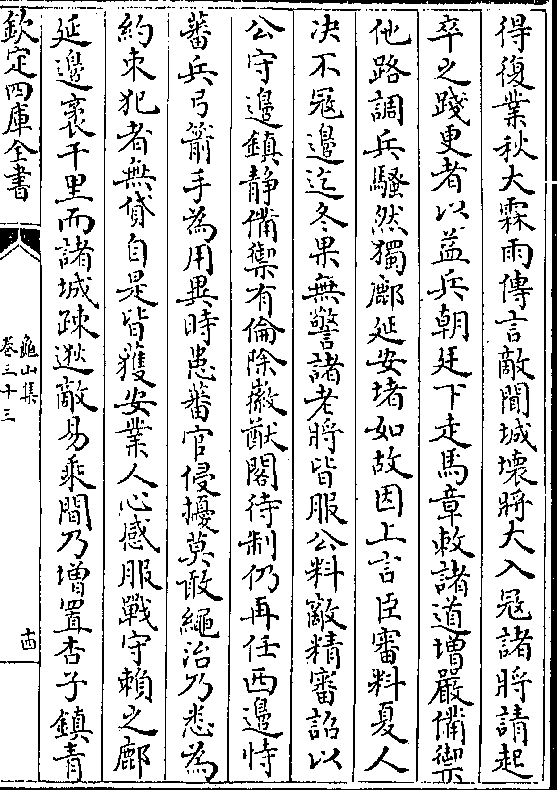 得復業秋大霖雨傳言敵聞城壞將大入冦諸將請起
卒之踐更者以益兵朝廷下走馬章敕諸道增嚴備禦
他路調兵騷然獨鄜延安堵如故因上言臣審料夏人
决不冦邊迄冬果無警諸老將皆服公料敵精審詔以
公守邊鎮静備禦有倫除徽猷閣待制仍再任西邊恃
蕃兵弓箭手為用異時患蕃官侵擾莫敢繩治乃悉為
約束犯者無貸自是皆獲安業人心感服戰守賴之鄜
延邊袤千里而諸城疎逖敵易乘間乃增置杏子鎮青
欽定四庫全書
龜山集
卷三十三
十四